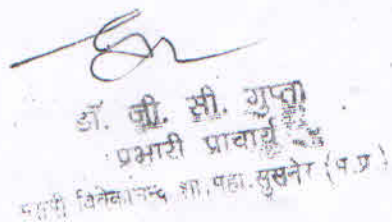 डॉ. जी. सी. गुप्ता
प्रभारी प्राचार्य
स्वामी विवेकानन्द शा. महा. सुसनेर (म.प्र.)